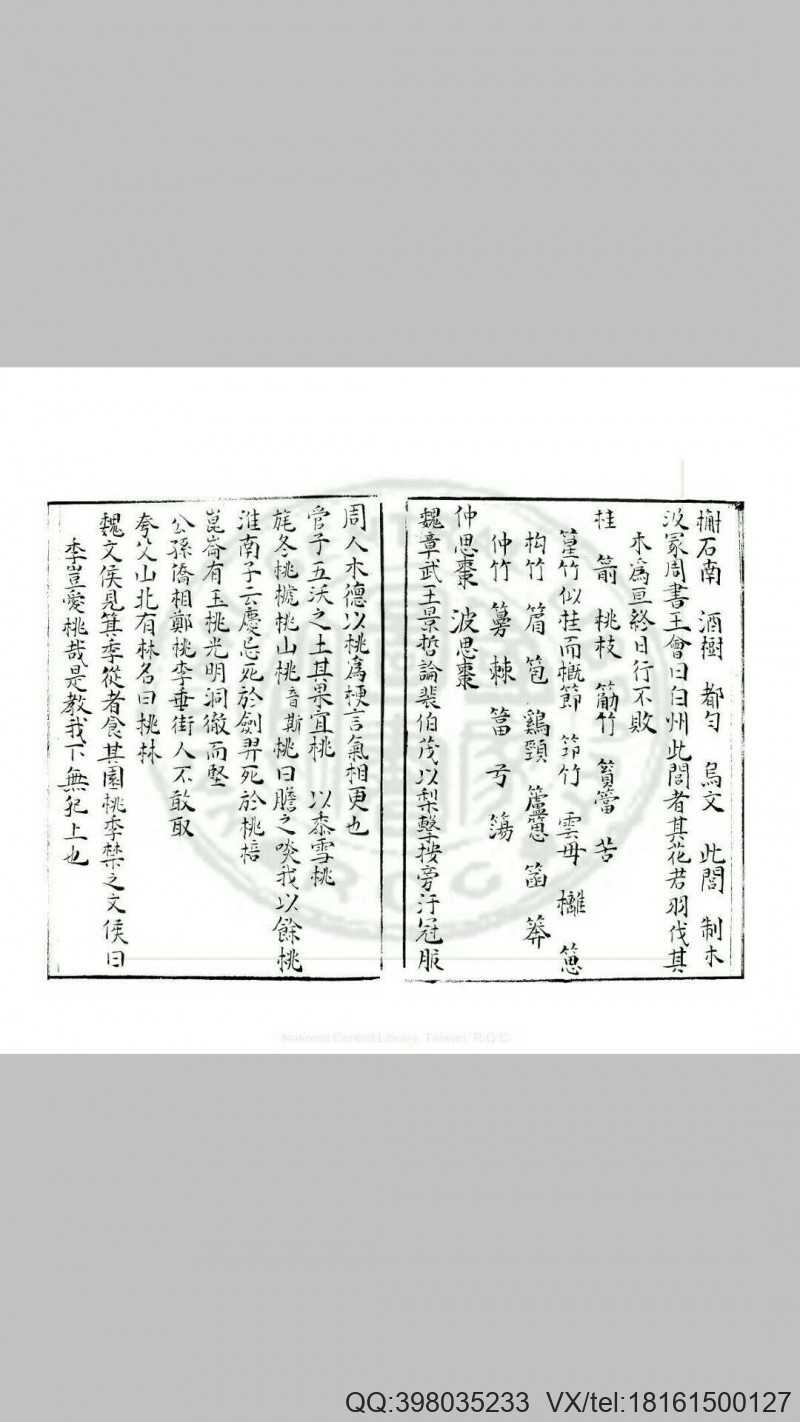 榭石南　酒樹　都勾　烏文　此閭　制木
汲冢周書王會曰白州此閭者其花若羽伐其
木爲亘終日行不敗
桂　箭　桃枝　筋竹　篔簹　苦
篁竹似桂而概節　笻竹　雲母　檵　箽
枸竹　筩　笣　鷄頸　簹箽　箘　簩
仲竹　篣　棘　簹　弓　簜
仲思棗　波思棗
魏章武王景哲論裴伯茂以梨擊按旁汙冠服
周人木德以桃爲梗言氣相更也
管子五沃之土其果宜桃　以黍雪桃
旄冬桃榹桃山桃音斯桃曰膽之啖我以餘桃
淮南子云慶忌死於劍羿死於桃棓
崑崙有玉桃光明洞徹而堅
公孫僑相鄭桃李垂街人不敢取
夸父山北有林名曰桃林
魏文侯見箕季從者食其園桃季禁之文侯曰
季豈愛桃哉是教我下無犯上也
National Central Library, Taiwan, R.O.C
QQ:398035233 VX/tel:18161500127